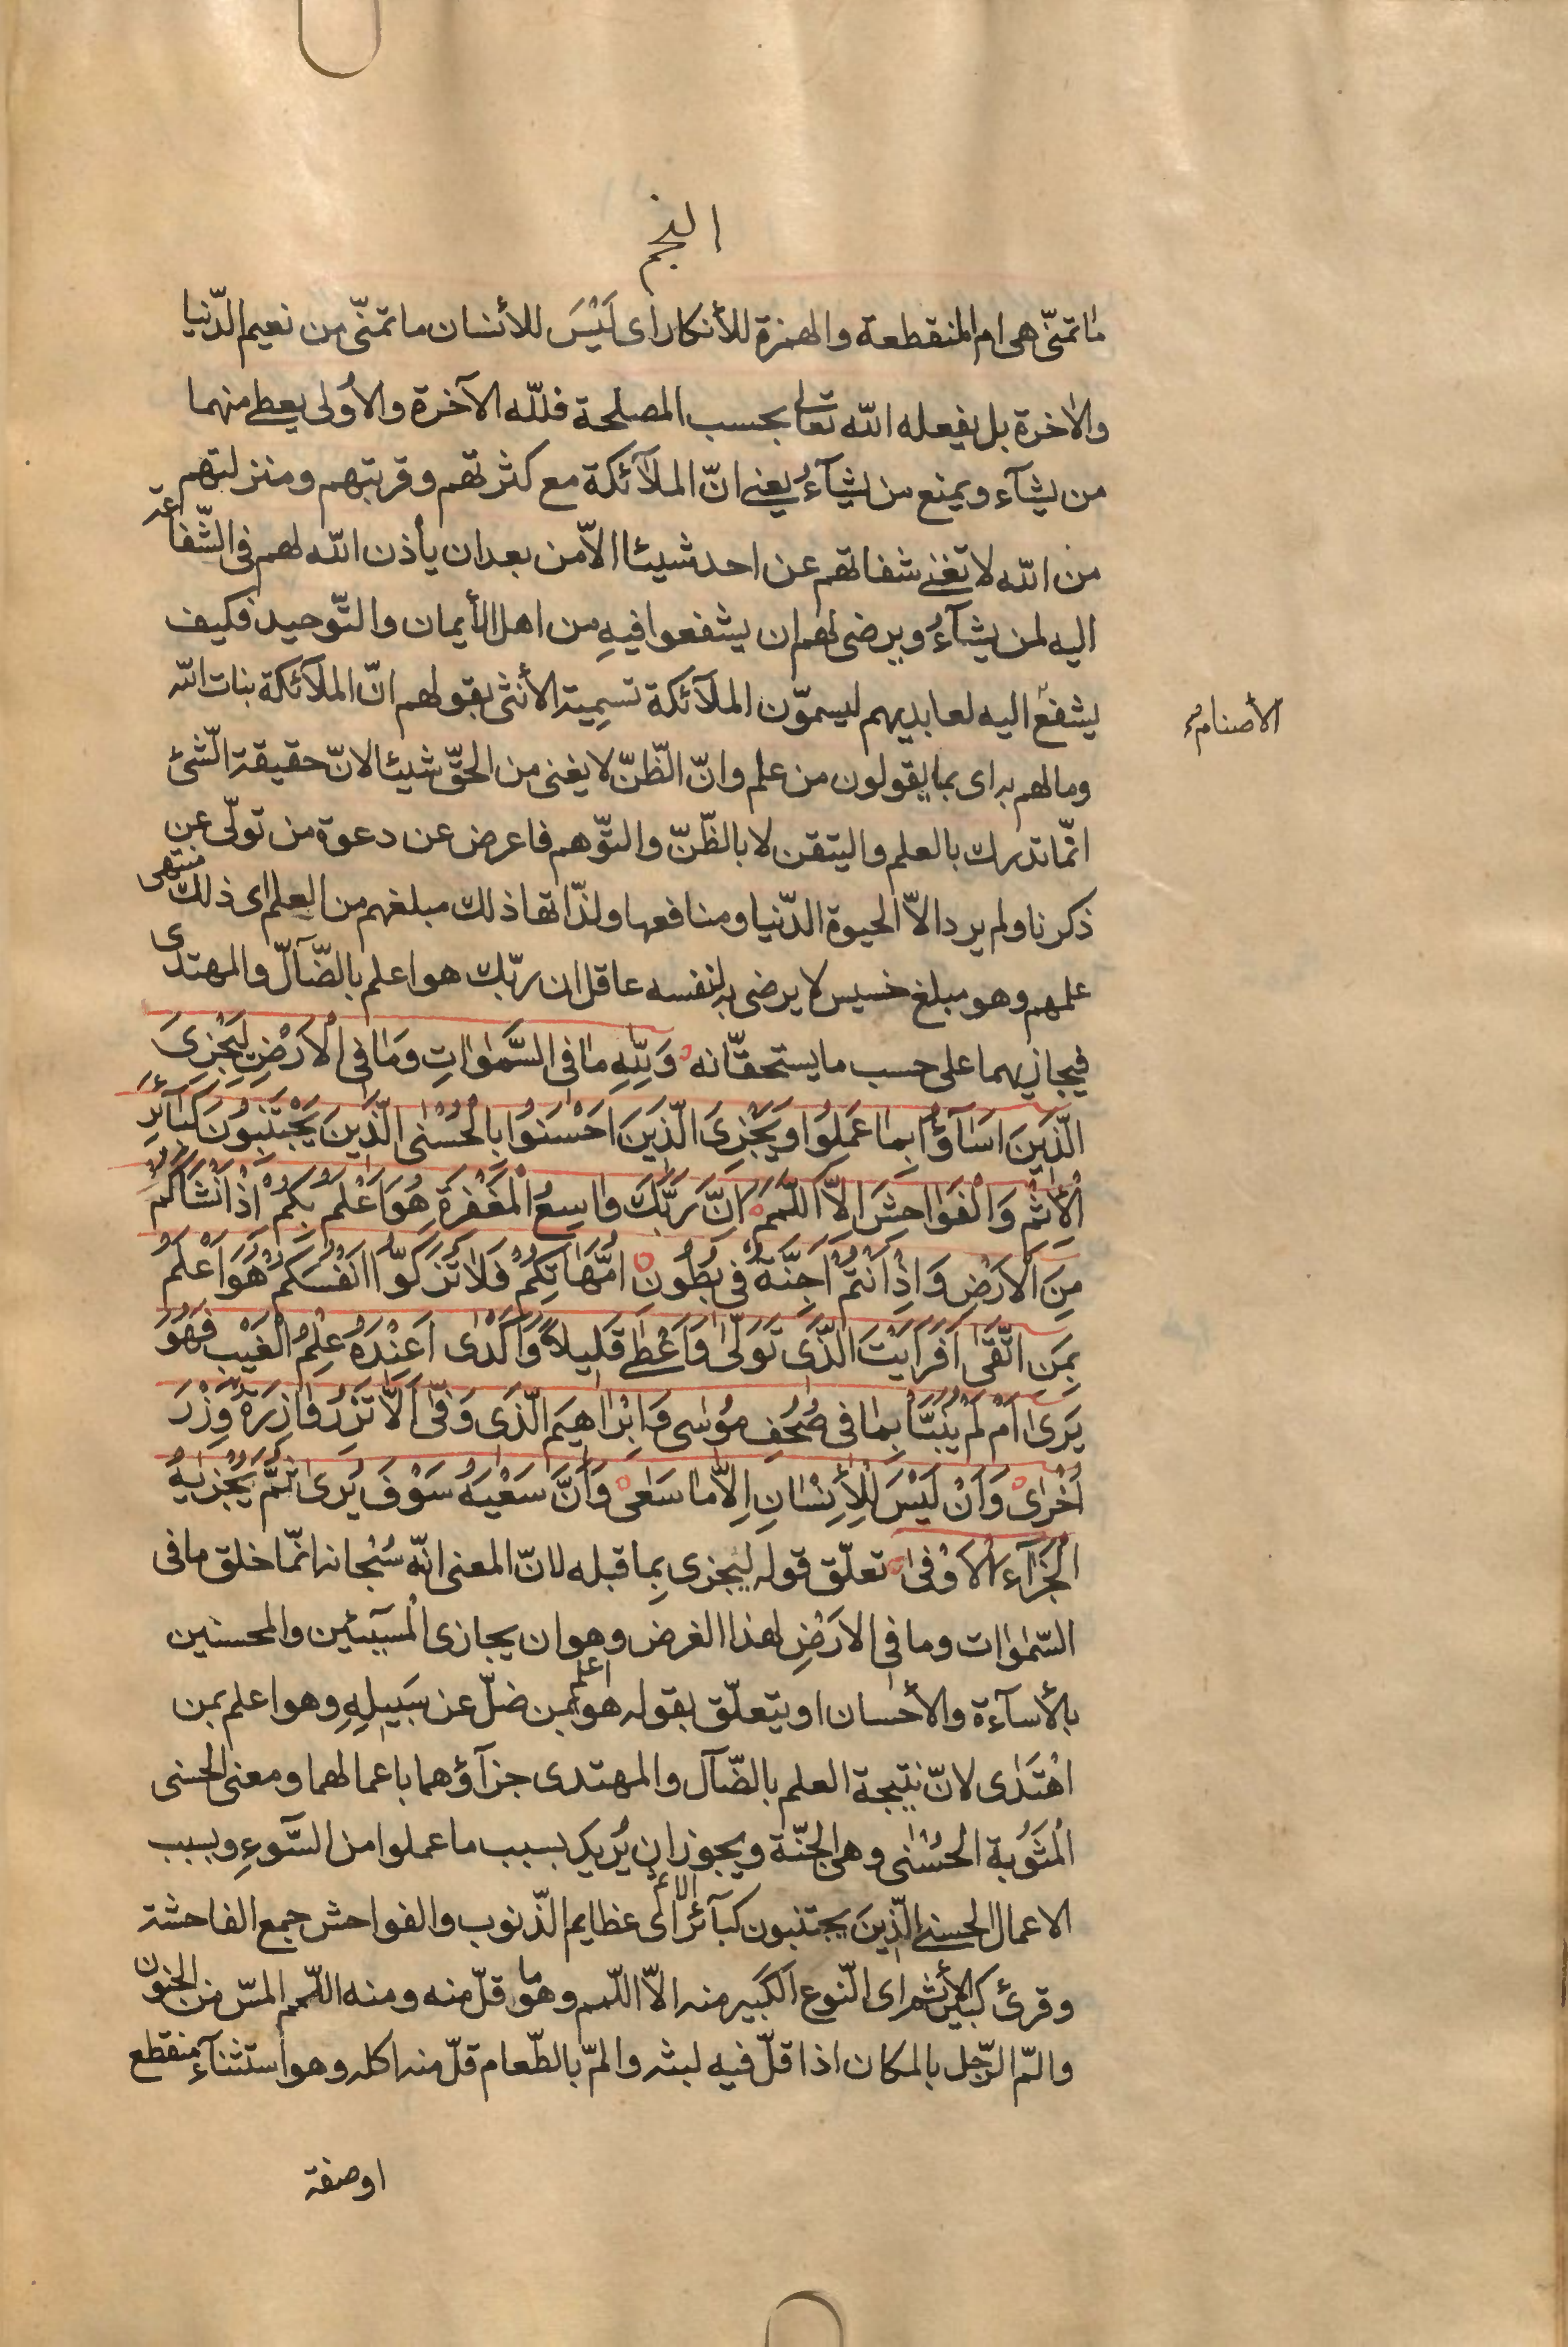 النجم
ما تمنّى هى ام المنقطعة والهمزة للأنكار اى لَيْسَ للأنسان ما تمنّى من نعيم الدّنيا
والاخرة بل يفعله اللّه تعالى بحسب المصلحة فللّه الآخرة والأولى يعطى منهما
من يشآء ويمنع من يشآءُ يعنى انّ الملآئكة مع كثرتهم وقربتهم ومنزلتهم
من اللّه لا تغنى شفاتهم عن احد شيئا الاّ من بعد ان يأذن اللّه لهم فى الشّفاعة
اليه لمن يشآءُ ويرضى لهم ان يشفعوا فيهِ من اهل الأيمان والتّوحيد فكيف
يشفع اليه لعابديهم ليسمّون الملآئكة تسمِية الأنثى بقولهم انّ الملآئكة بنات اللّه
الأصنام
وما لهم به اى بما يقولون من علم وانّ الظّنّ لا يغنى من الحقّ شيئا لانّ حقيقة الشّئ
انّما تدرك بالعلم واليتقن لا بالظّنّ والتّوهم فاعرض عن دعوة من تولّى عن
ذكرنا ولم يرد الاّ الحيوة الدّنيا ومنافعها ولذّاتها ذلك مبلغهم من العلم اى ذلك منتهى
علمهم وهو مبلغ خسيس لا يرضى به لنفسه عاقل ان ربّك هو اعلم بالضّآلّ والمهتدى
فيجازيهما على حسب ما يستحقّانه وَلِلّٰهِ مَا فِى السَّمٰوٰاتِ وَمَا فِى الْاَرْضِ لِيَجْزِىَ
الَّذِينَ اَسَآؤُا بِمَا عَمِلُوا وَيَجْزِىَ الَّذِينَ اَحْسَنُوا بِالْحُسْنٰى الَّذِينَ يَجْتَنِبُونَ كَبَآئِرَ
الْأِثْمِ وَالْفَوَاحِشَ اِلاَّ اللَّمَمَ اِنَّ رَبَّكَ وٰاسِعُ الْمَغْفِرَةِ هُوَ اَعْلَمُ بِكُمْ اِذْ اَنْشَاَكُمْ
مِنَ الْاَرْضِ وَاِذْ اَنْتُمْ اَجِنَّةٌ فِى بُطُونِ اُمَّهَاتِكُمْ فَلاٰ تُزَكّوُا اَنْفُسَكُمْ هُوَ اَعْلَمُ
بِمَنِ اتَّقٰى اَفَرَاَيْتَ الَّذِى تَوَلّىٰ وَاَعْطىٰ قَلِيلاً وَاَكْدٰى اَعِنْدَهُ عِلْمُ الْغَيْبِ فَهُوَ
يَرىٰ اَمْ لَمْ يُنَبَّأْ بِمَا فِى صُحُفِ مُوسٰى وَاِبْرٰاهِيمَ الَّذِى وَفّىٰ اَلاّٰ تَزِرُ وٰازِرَةٌ وِزْرَ
اُخْرٰى وَاَنْ لَيْسَ لِلْأِنْسَانِ اِلاّٰ مَا سَعٰى وَاَنَّ سَعْيَهُ سَوْفَ يُرىٰ ثُمَّ يُجْزٰيهُ
الْجَزَآءَ الْاَوْفٰى تعلّق قوله ليجزى بما قبله لانّ المعنى انّه سُبْحانه انّما خلق ما فى
السّمٰوٰات وما فى الارَضِ لهذا الغرض وهو ان يجازى الْمسِيئين والمحسنين
بالأسآءة والأحسان او يتعلّق بقوله هو اعلم بمن ضلّ عن سَبِيلِهِ وهو اعلم بمن
اهْتَدٰى لانّ نتيجة العلم بالضّآل والمهتدى جزآؤهما باعمالهما ومعنى الحسنى
الْمَثُوبة الحُسْنٰى وهى الجنّة ويجوز ان يُريك بسبب ما عملوا من السَّوءِ وبسبب
الاعمال الحسنى الّذِينَ يجتنبون كبآئر الاثم اى عظايم الذّنوب والفواحش جمع الفاحشة
وقرئ كبير الأثم اى النّوع الكَبير منه الاّ اللّمم وهو ما قلّ منه ومنه اللّمم المسّ من الجنون
والمّ الرّجل بالمكان اذا قلّ فيه لبثه والمّ بالطّعام قلّ منه اكله وهو استثنآء منقطع
او صفة